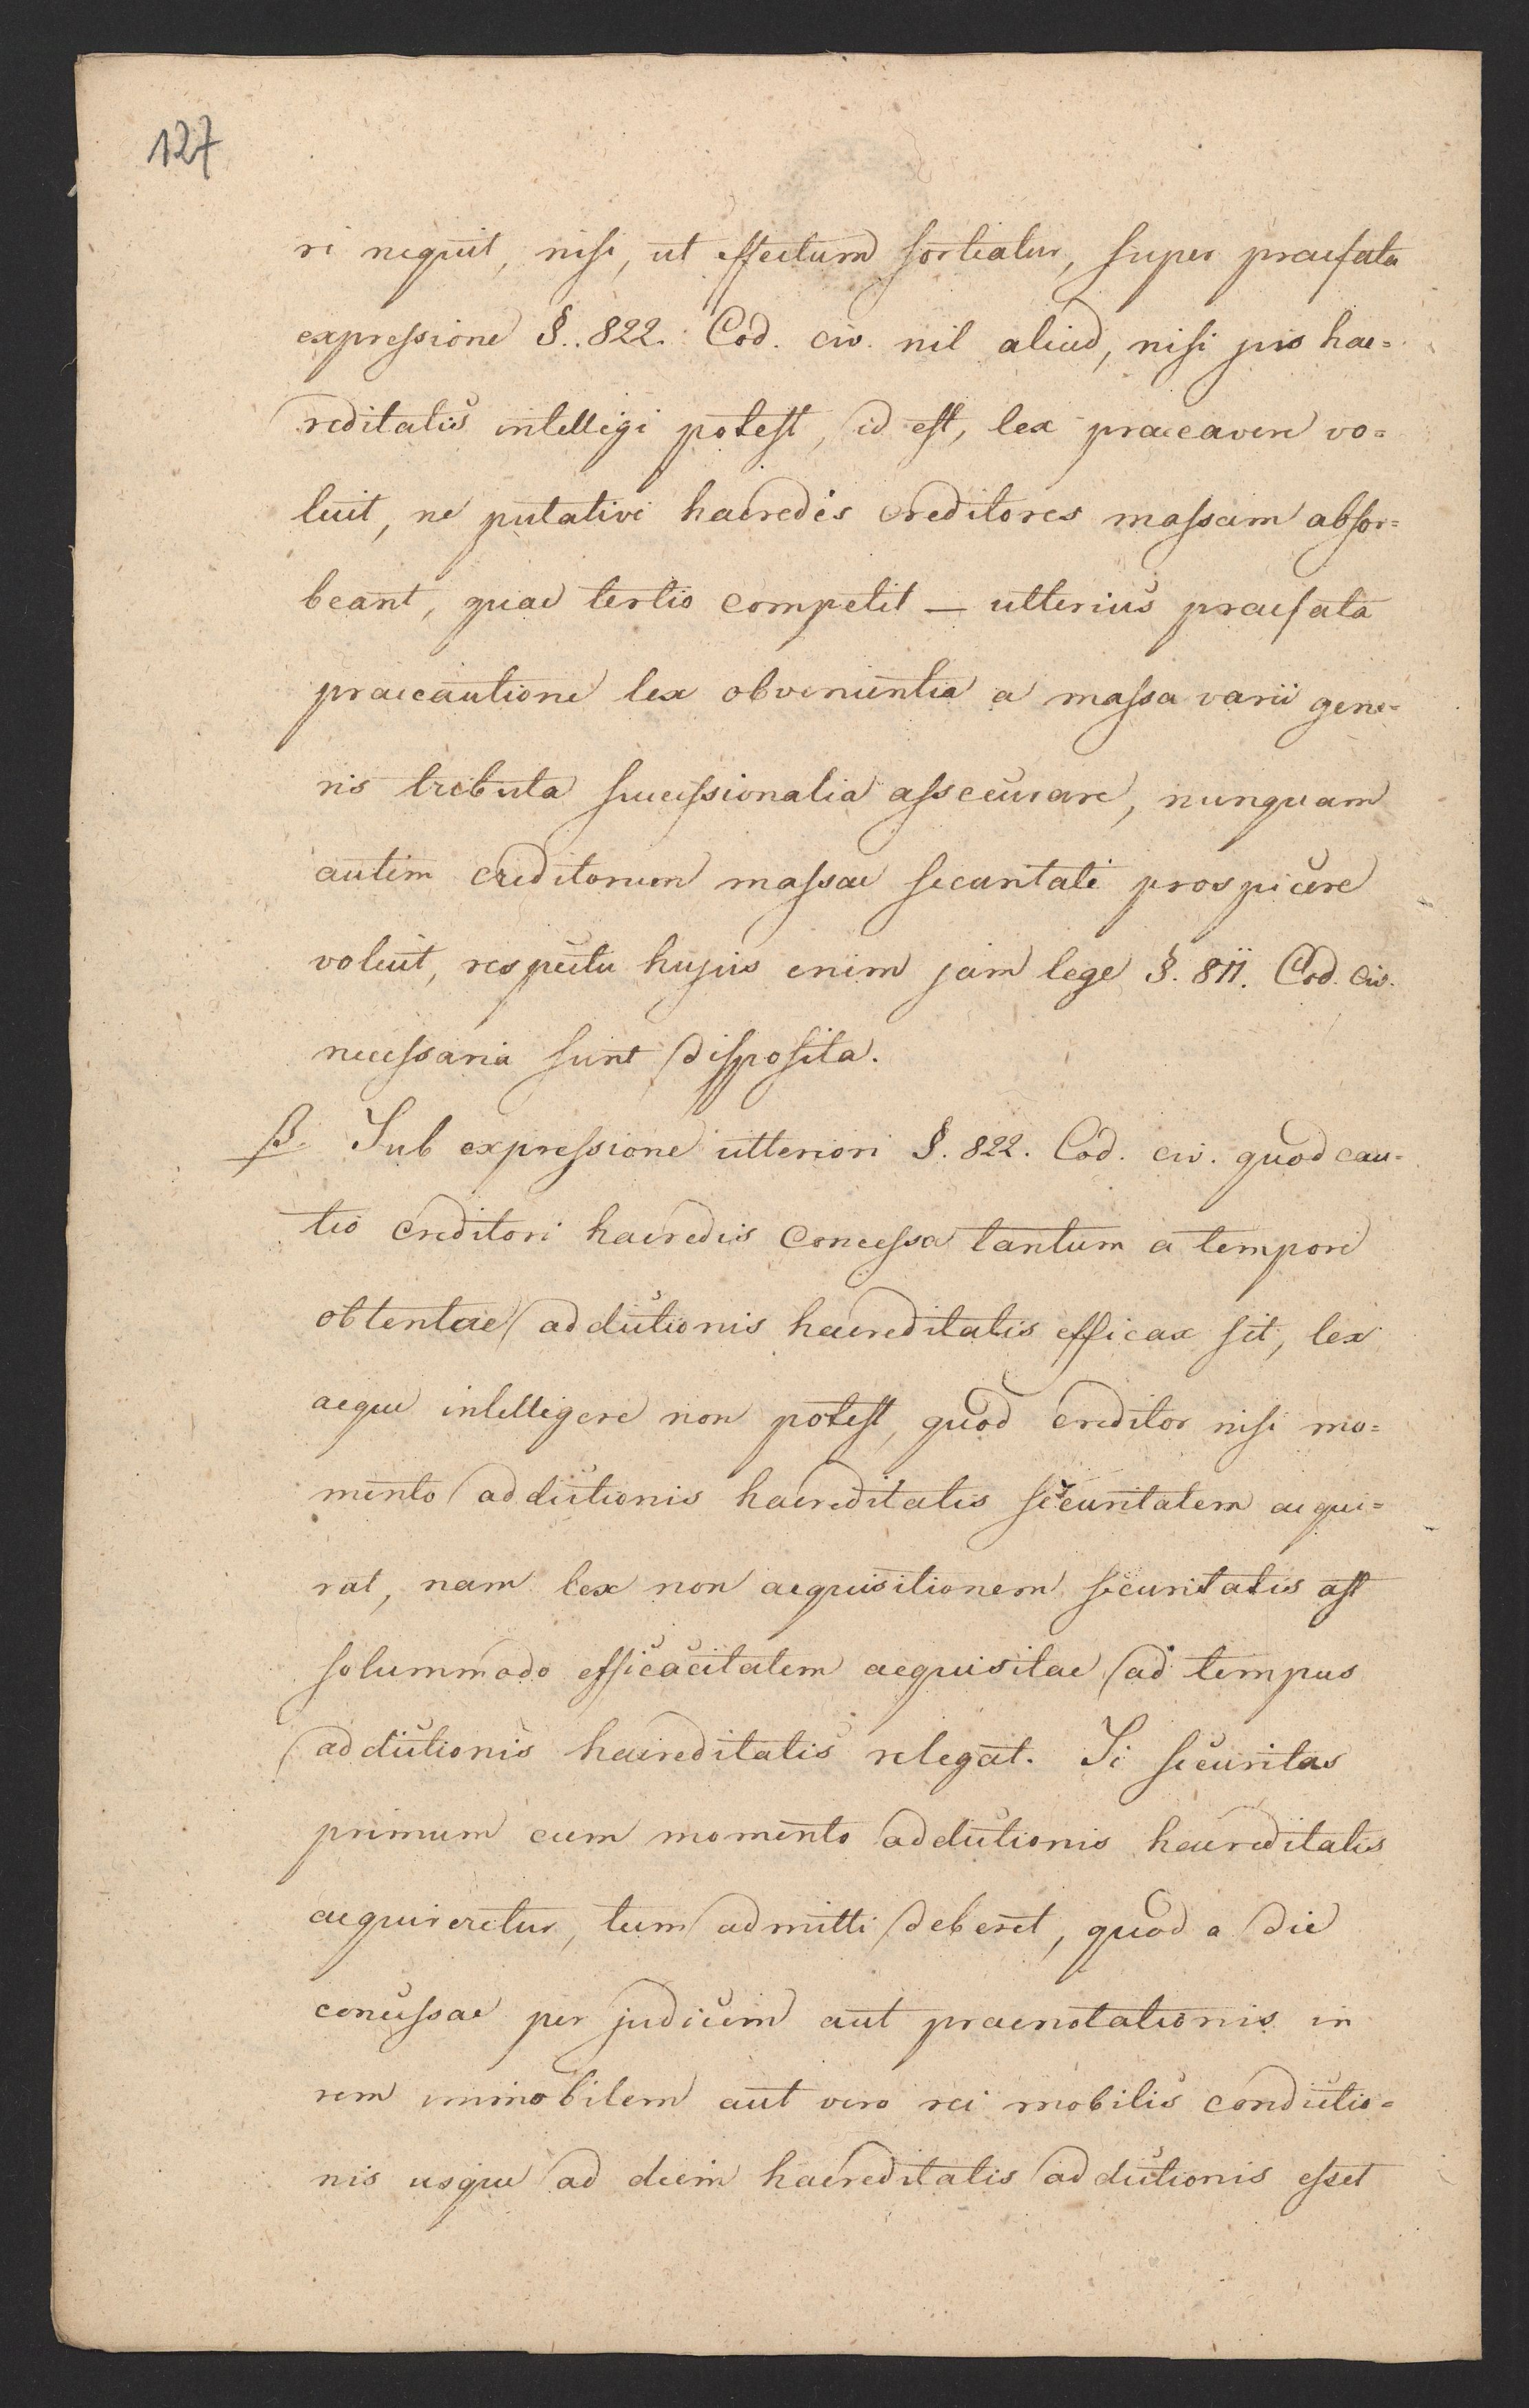 127
ri nequit, nisi, ut effectum sortiatur, super praefata
expressione §. 822. Cod. civ. nil aliud, nisi jus hae=
reditatis intelligi potest, id est, lex praecavere vo=
luit, ne putativi haeredis creditores massam absor=
beant, quae tertio competit — ulterius praefata
praecautione lex obvenientia a massa varii gene=
ris tributa successionalia assecurare, nunquam
autem creditorum massae securitati prospicere
voluit, respectu hujus enim jam lege §. 811. Cod. civ.
necessaria sunt disposita.
β. Sub expressione ulteriori §. 822. Cod. civ. quod cau=
tio creditori haeredis concessa tantum a tempore
obtentae addictionis haereditatis efficax sit, lex
aeque intelligere non potest, quod creditor nisi mo=
mento addictionis haereditatis securitatem acqui=
rat, nam lex non acquisitionem securitatis ast
solummodo efficacitatem acquisitae ad tempus
addictionis haereditatis relegat. Si securitas
primum cum momento addictionis haereditatis
acquireretur, tum admitti deberet, quod a die
concessae per judicium aut praenotationis in
rem immobilem aut vero rei mobilis conductio=
nis usque ad diem haereditatis addictionis esset